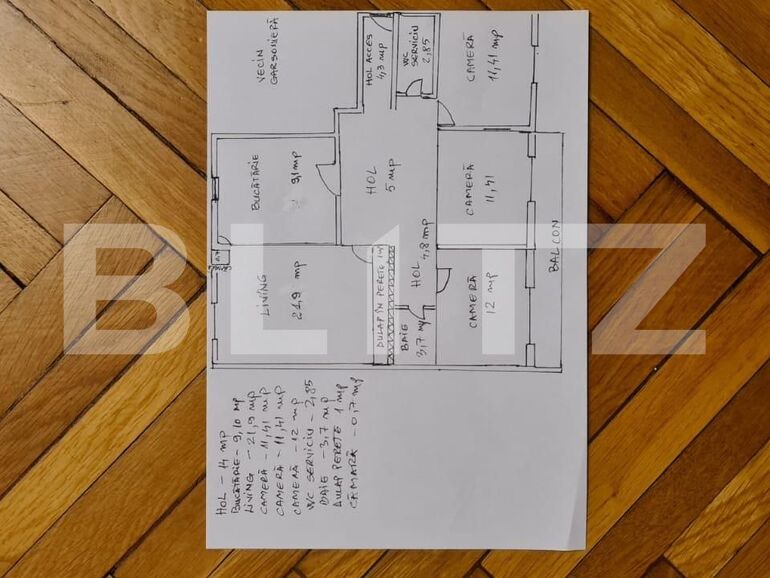 VECIN
GARSONIERĂ
HOL ACCES
4,3 mp
WC
SERVICIU
2,85
CAMERĂ
11,41 mp
BUCĂTĂRIE
9,1 mp
HOL
5 mp
CAMERĂ
11,41
BALCON
LIVING
21,9 mp
DULAP ÎN PERETE 1 mp
HOL
4,8 mp
BAIE
3,7 mp
CAMERĂ
12 mp
HOL - 14 mp
BUCĂTĂRIE - 9,10 mp
LIVING - 21,9 mp
CAMERĂ - 11,41 mp
CAMERĂ - 11,41 mp
CAMERĂ - 12 mp
WC SERVICIU - 2,85
BAIE - 3,7 mp
DULAP PERETE 1 mp
CĂMARĂ - 0,7 mp
BLITZ